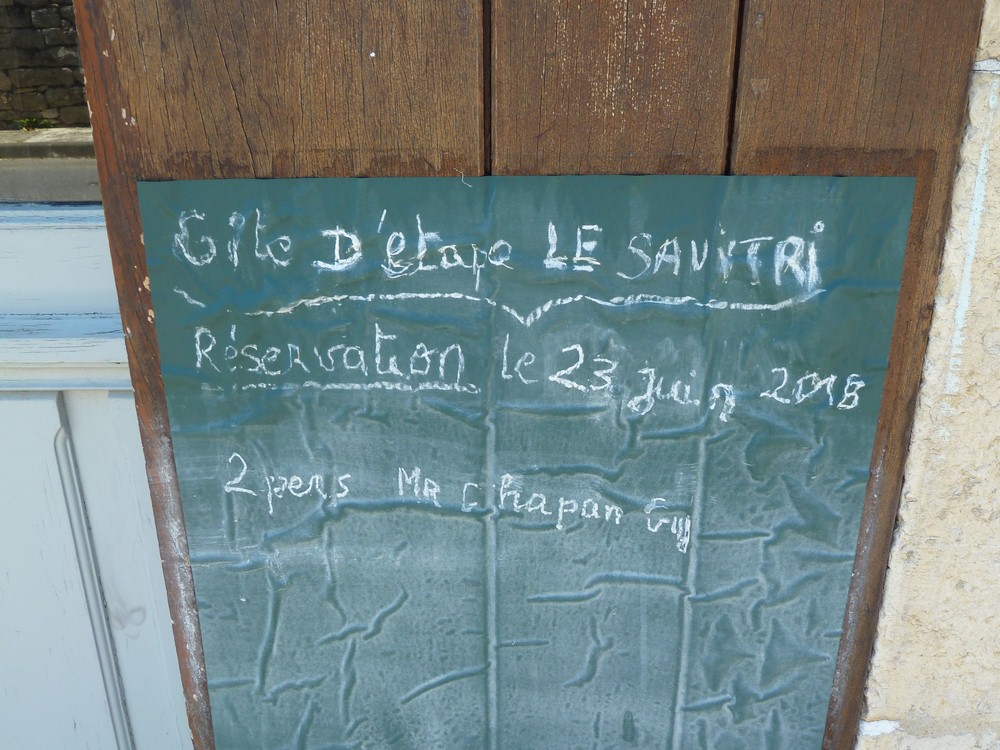 Gîte D'étape LE SAVITRi
Réservation le 23 juin 2018
2 pers MR Chapan Guy